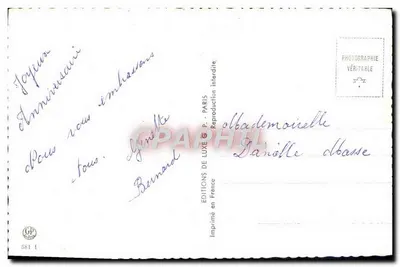 Joyeux
Anniversaire
Nous vous embrassons
tous. Ginette
Bernard
EDITIONS DE LUXE G P. - PARIS
Imprimé en France
Reproduction interdite
PHOTOGRAPHIE
VÉRITABLE
Mademoiselle
Danielle Masse
CPAPHIL.com